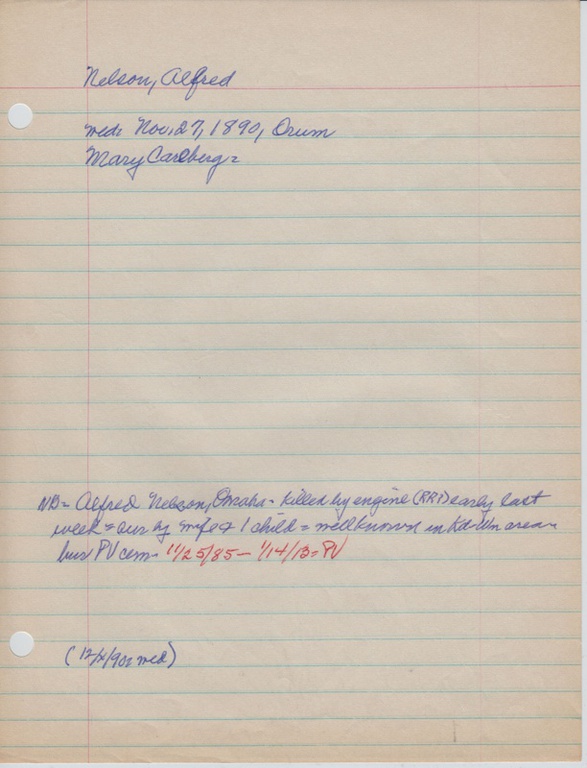 Nelson, Alfred
med: Nov. 27, 1890, Orum
Mary Carlberg =
NB = Alfred Nelson, Omaha - killed by engine (RR?) early last
week = sur by wife & 1 child = well known in area -
bur PV cem - 11/25/85 - 1/14/13 = PV
(12/4/90: med)